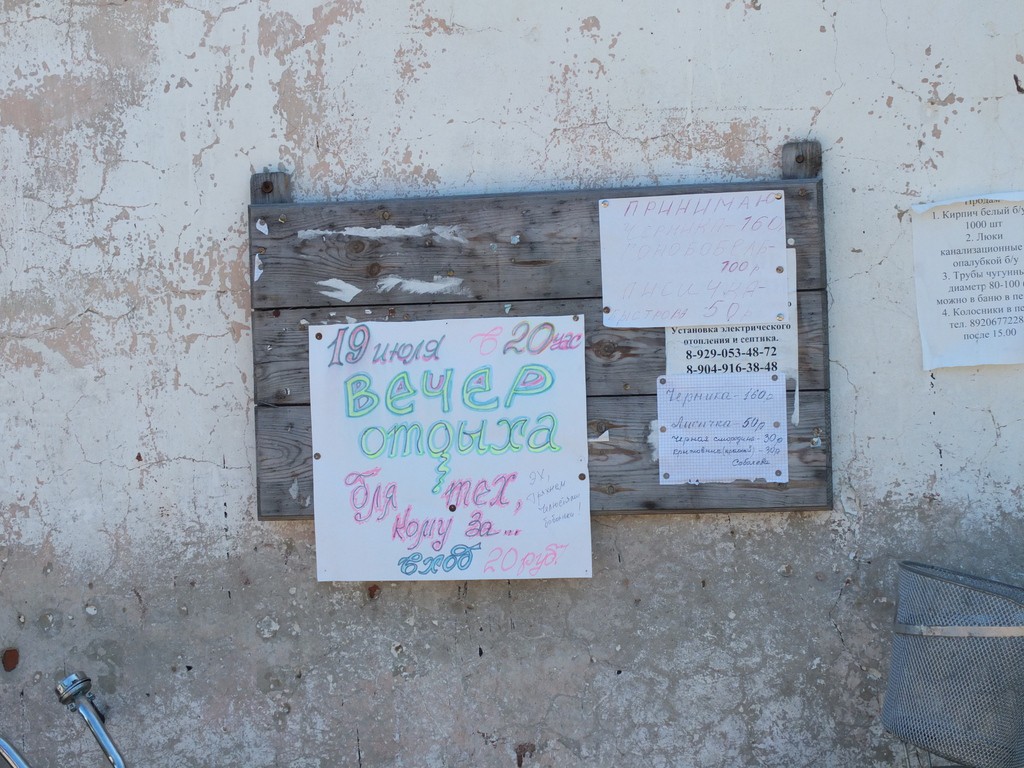 19 июля в 20 час
вечер
отдыха
для тех,
кому за...
вход 20 руб.
ПРИНИМАЮ
160
100 р
ЛИСИЧКА-
50 р.
Установка электрического
отопления и септика.
8-929-053-48-72
8-904-916-38-48
Черника - 160р
Лисичка - 50р
черная смородина - 30р
крыжовник (красный) - 30р
Продам
1. Кирпич белый б/у
1000 шт
2. Люки
канализационные
опалубкой б/у
3. Трубы чугунны
диаметр 80-100
можно в баню в пе
4. Колосники в пе
тел. 8920677228
после 15.00